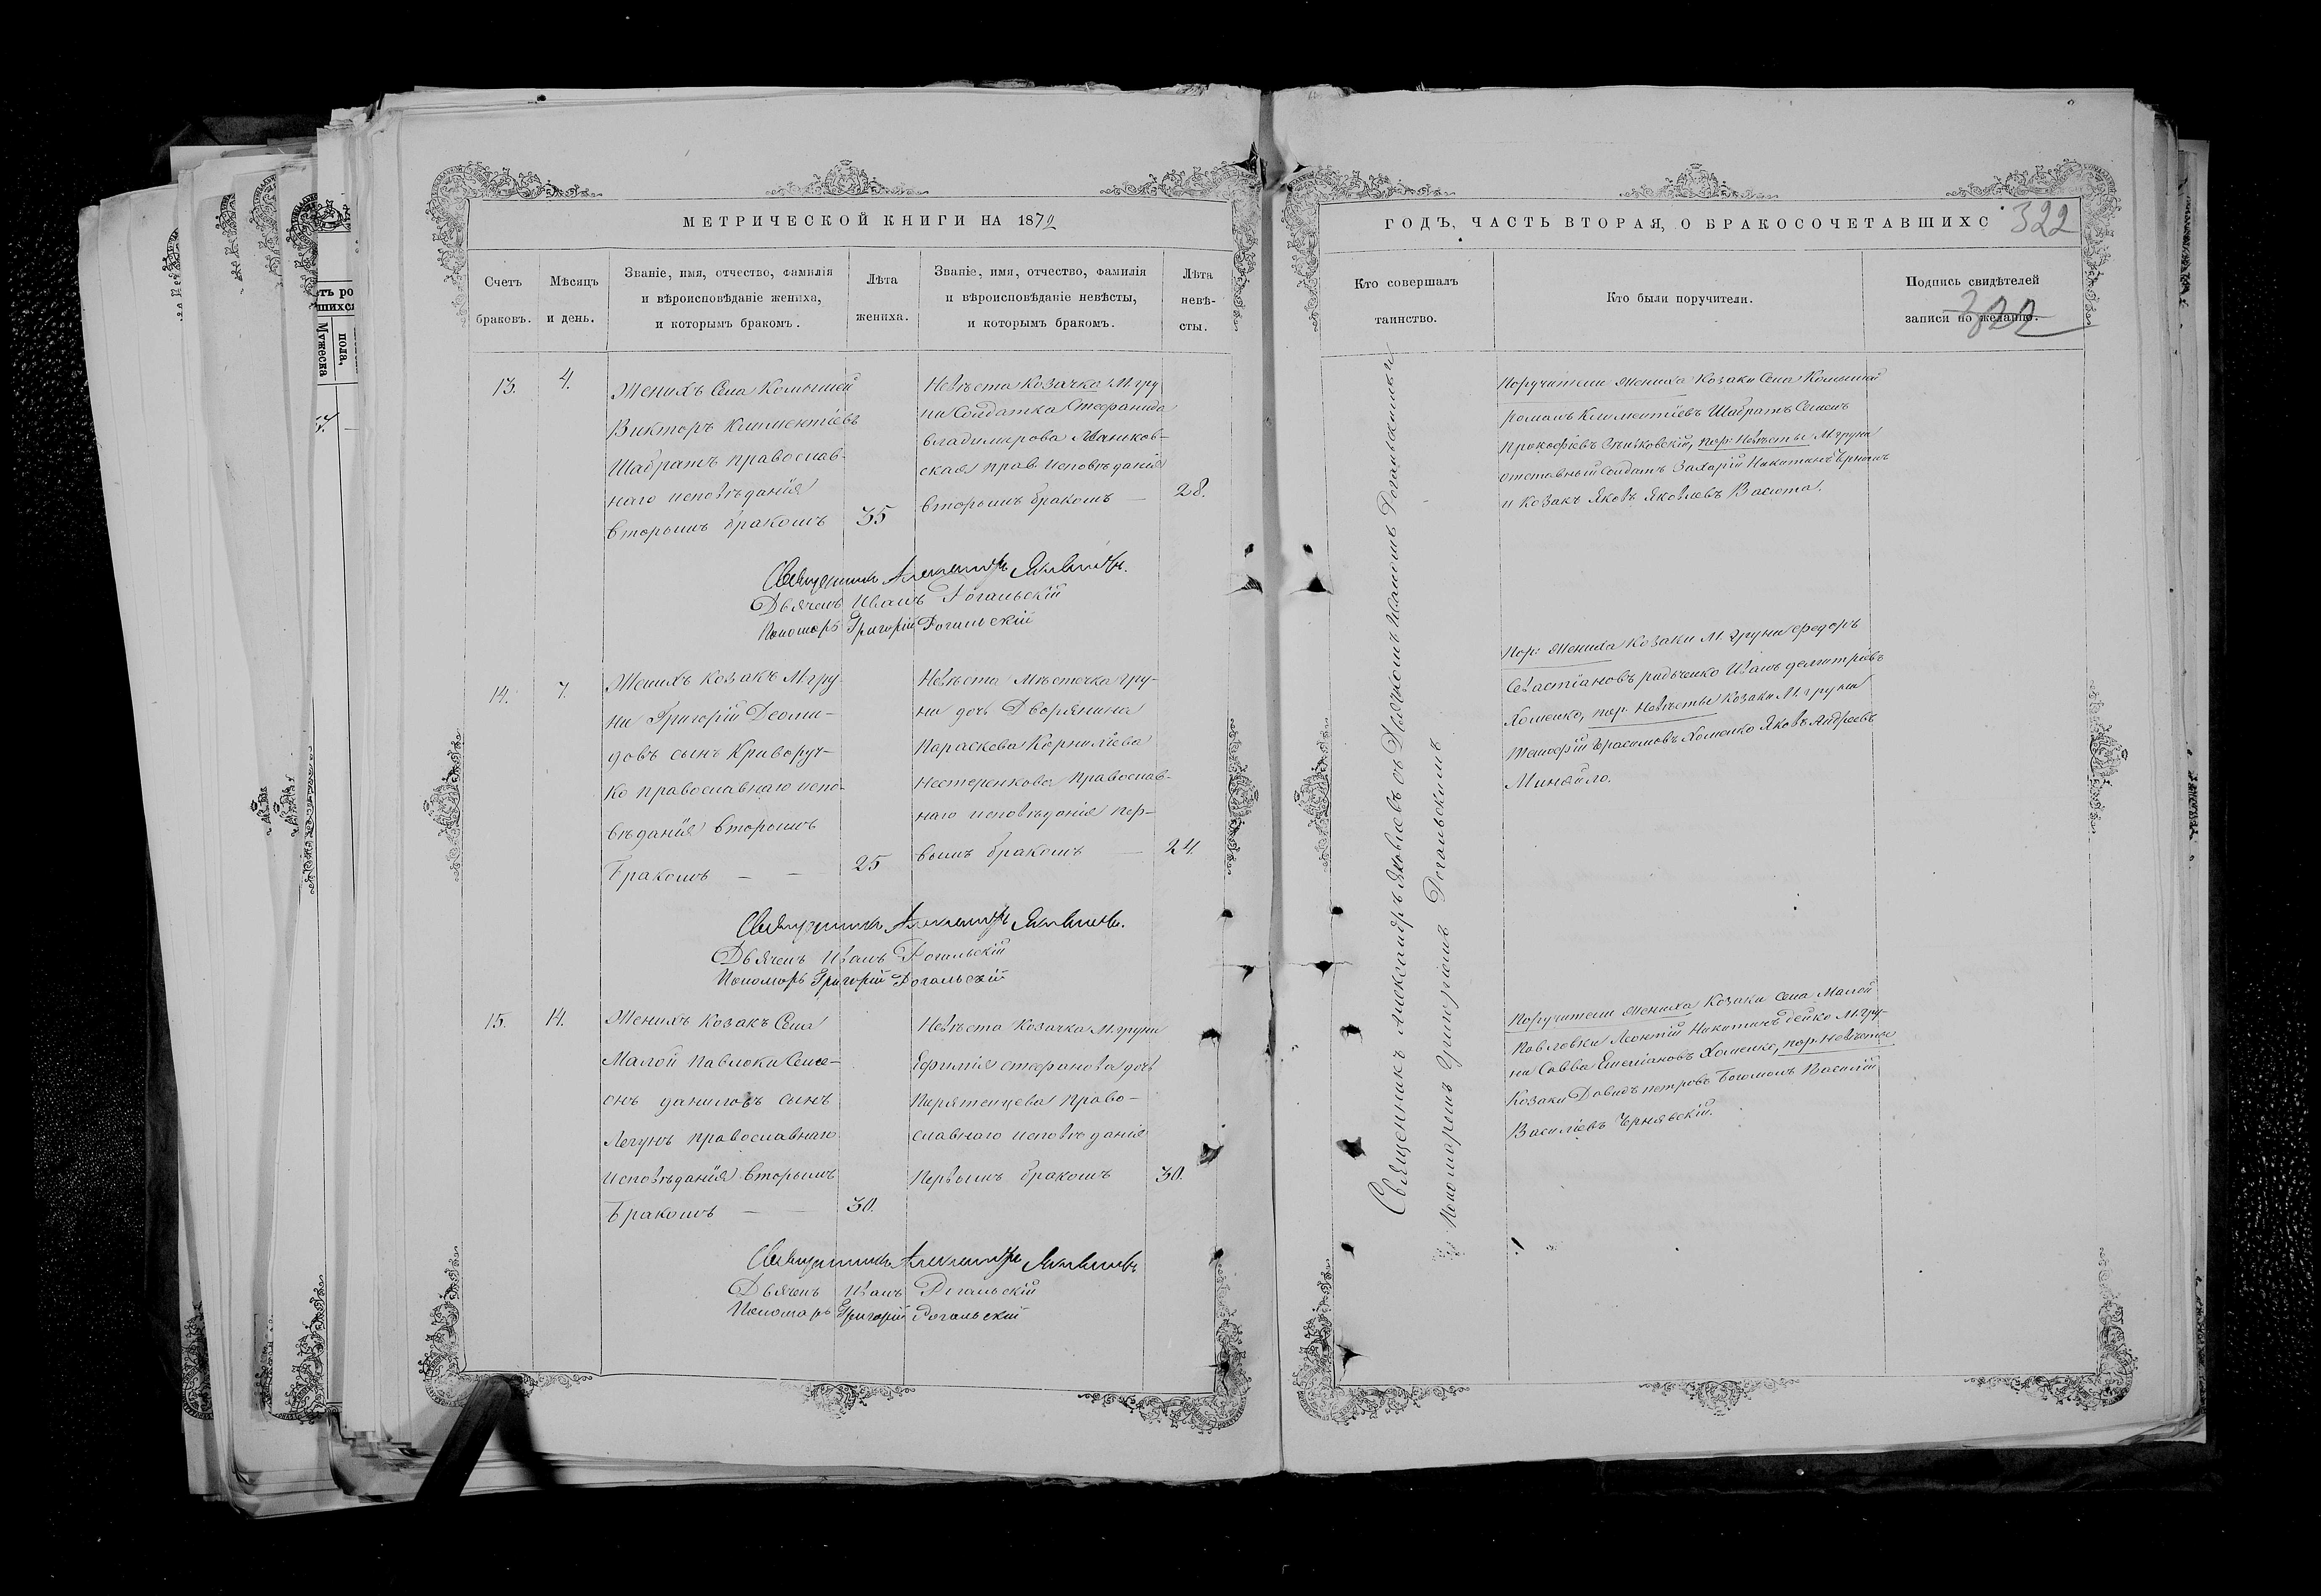 МЕТРИЧЕСКОЙ КНИГИ НА 1872
Счетъ браковъ.
Мѣсяцъ и день.
Званіе, имя, отчество, фамилія
и вѣроисповѣданіе жениха,
и которымъ бракомъ.
Лѣта
жениха.
Званіе, имя, отчество, фамилія
и вѣроисповѣданіе невѣсты,
и которымъ бракомъ.
Лѣта
невѣ-
сты.
13.
4.
Женихъ Села Комышей
Викторъ Климентіевъ
Шабратъ православ-
наго исповѣданія
вторымъ бракомъ
35
Невѣста Козачка М. гру
ни Солдатка Стефанида
Владимирова
ская прав. исповѣданія
вторымъ бракомъ —
28.
Священникъ Александръ Яковлевъ.
Дьячекъ Иванъ Рогальскій
Пономарь Григорій Рогальскій
14.
7.
Женихъ козакъ М. гру-
ни Григорій Деоми-
довъ сынъ Криворуч-
ко православнаго испо-
вѣданія вторымъ
Бракомъ — —
25
Невѣста Мѣстечка гру-
ни дочь Дворянина
Параскева Корниліева
Нестеренкова православ-
наго исповѣданія пер-
вымъ бракомъ —
24.
Священникъ Александръ Яковлевъ.
Дьячекъ Иванъ Рогальскій
Пономарь Григорій Рогальскій
15.
14.
Женихъ Козакъ Села
Малой Павловки Симе-
онъ даниловъ сынъ
Легунъ православнаго
исповѣданія вторымъ
Бракомъ — —
30.
Невѣста Козачка М. груни
Ефимія Стефанова дочь
Пирятенцева право-
славнаго исповѣданія
Первымъ бракомъ
30.
Священникъ Александръ Яковлевъ
Дьячекъ Иванъ Рогальскій
Пономарь Григорій Рогальскій
ГОДЪ, ЧАСТЬ ВТОРАЯ, О БРАКОСОЧЕТАВШИХС
322
Кто совершалъ
таинство.
Кто были поручители.
Подпись свидѣтелей
записи по желанію.
322
Священникъ Александръ Яковлевъ съ Дьячкомъ Иваномъ Рогальскимъ
и Пономаремъ Григоріемъ Рогальскимъ
Поручители жениха Козаки Села Комышей
романъ Климентіевъ Шабратъ Семенъ
Прокофіевъ, пор: Невѣсты М. груни
отставный Солдатъ Захарій Никитинъ
и Козакъ Яковъ Яковлевъ Васюта.
Пор: жениха Козаки М. груни федоръ
Севастіановъ радченко Иванъ димитріевъ
Хоменко, пор. Невѣсты Козаки М. груни
Тимофій Герасимовъ Хоменко Яковъ Андреевъ
Миняйло.
Поручители жениха Козаки Села Малой
Павловки Леонтій Никитинъ Дейко М. гру-
ни Савва Емеліановъ Хоменко, пор. Невѣсты
Козаки Давидъ петровъ Богомолъ Василій
Василіевъ Чернявскій.